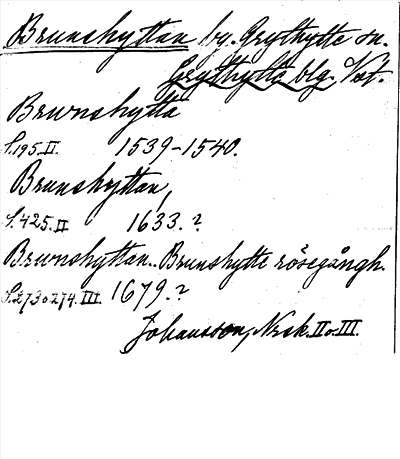 Brunshyttan by. Grythytte sn.
Grythytte blg. Vst.
Brwnshytta
S.195.II. 1539-1540.
Brunshyttan,
S.425.II 1633.?
Brwnshyttan.. Brunshytte rösegångh.
S.273 o 274.III. 1679.?
Johansson, Nrsk. II o. III.